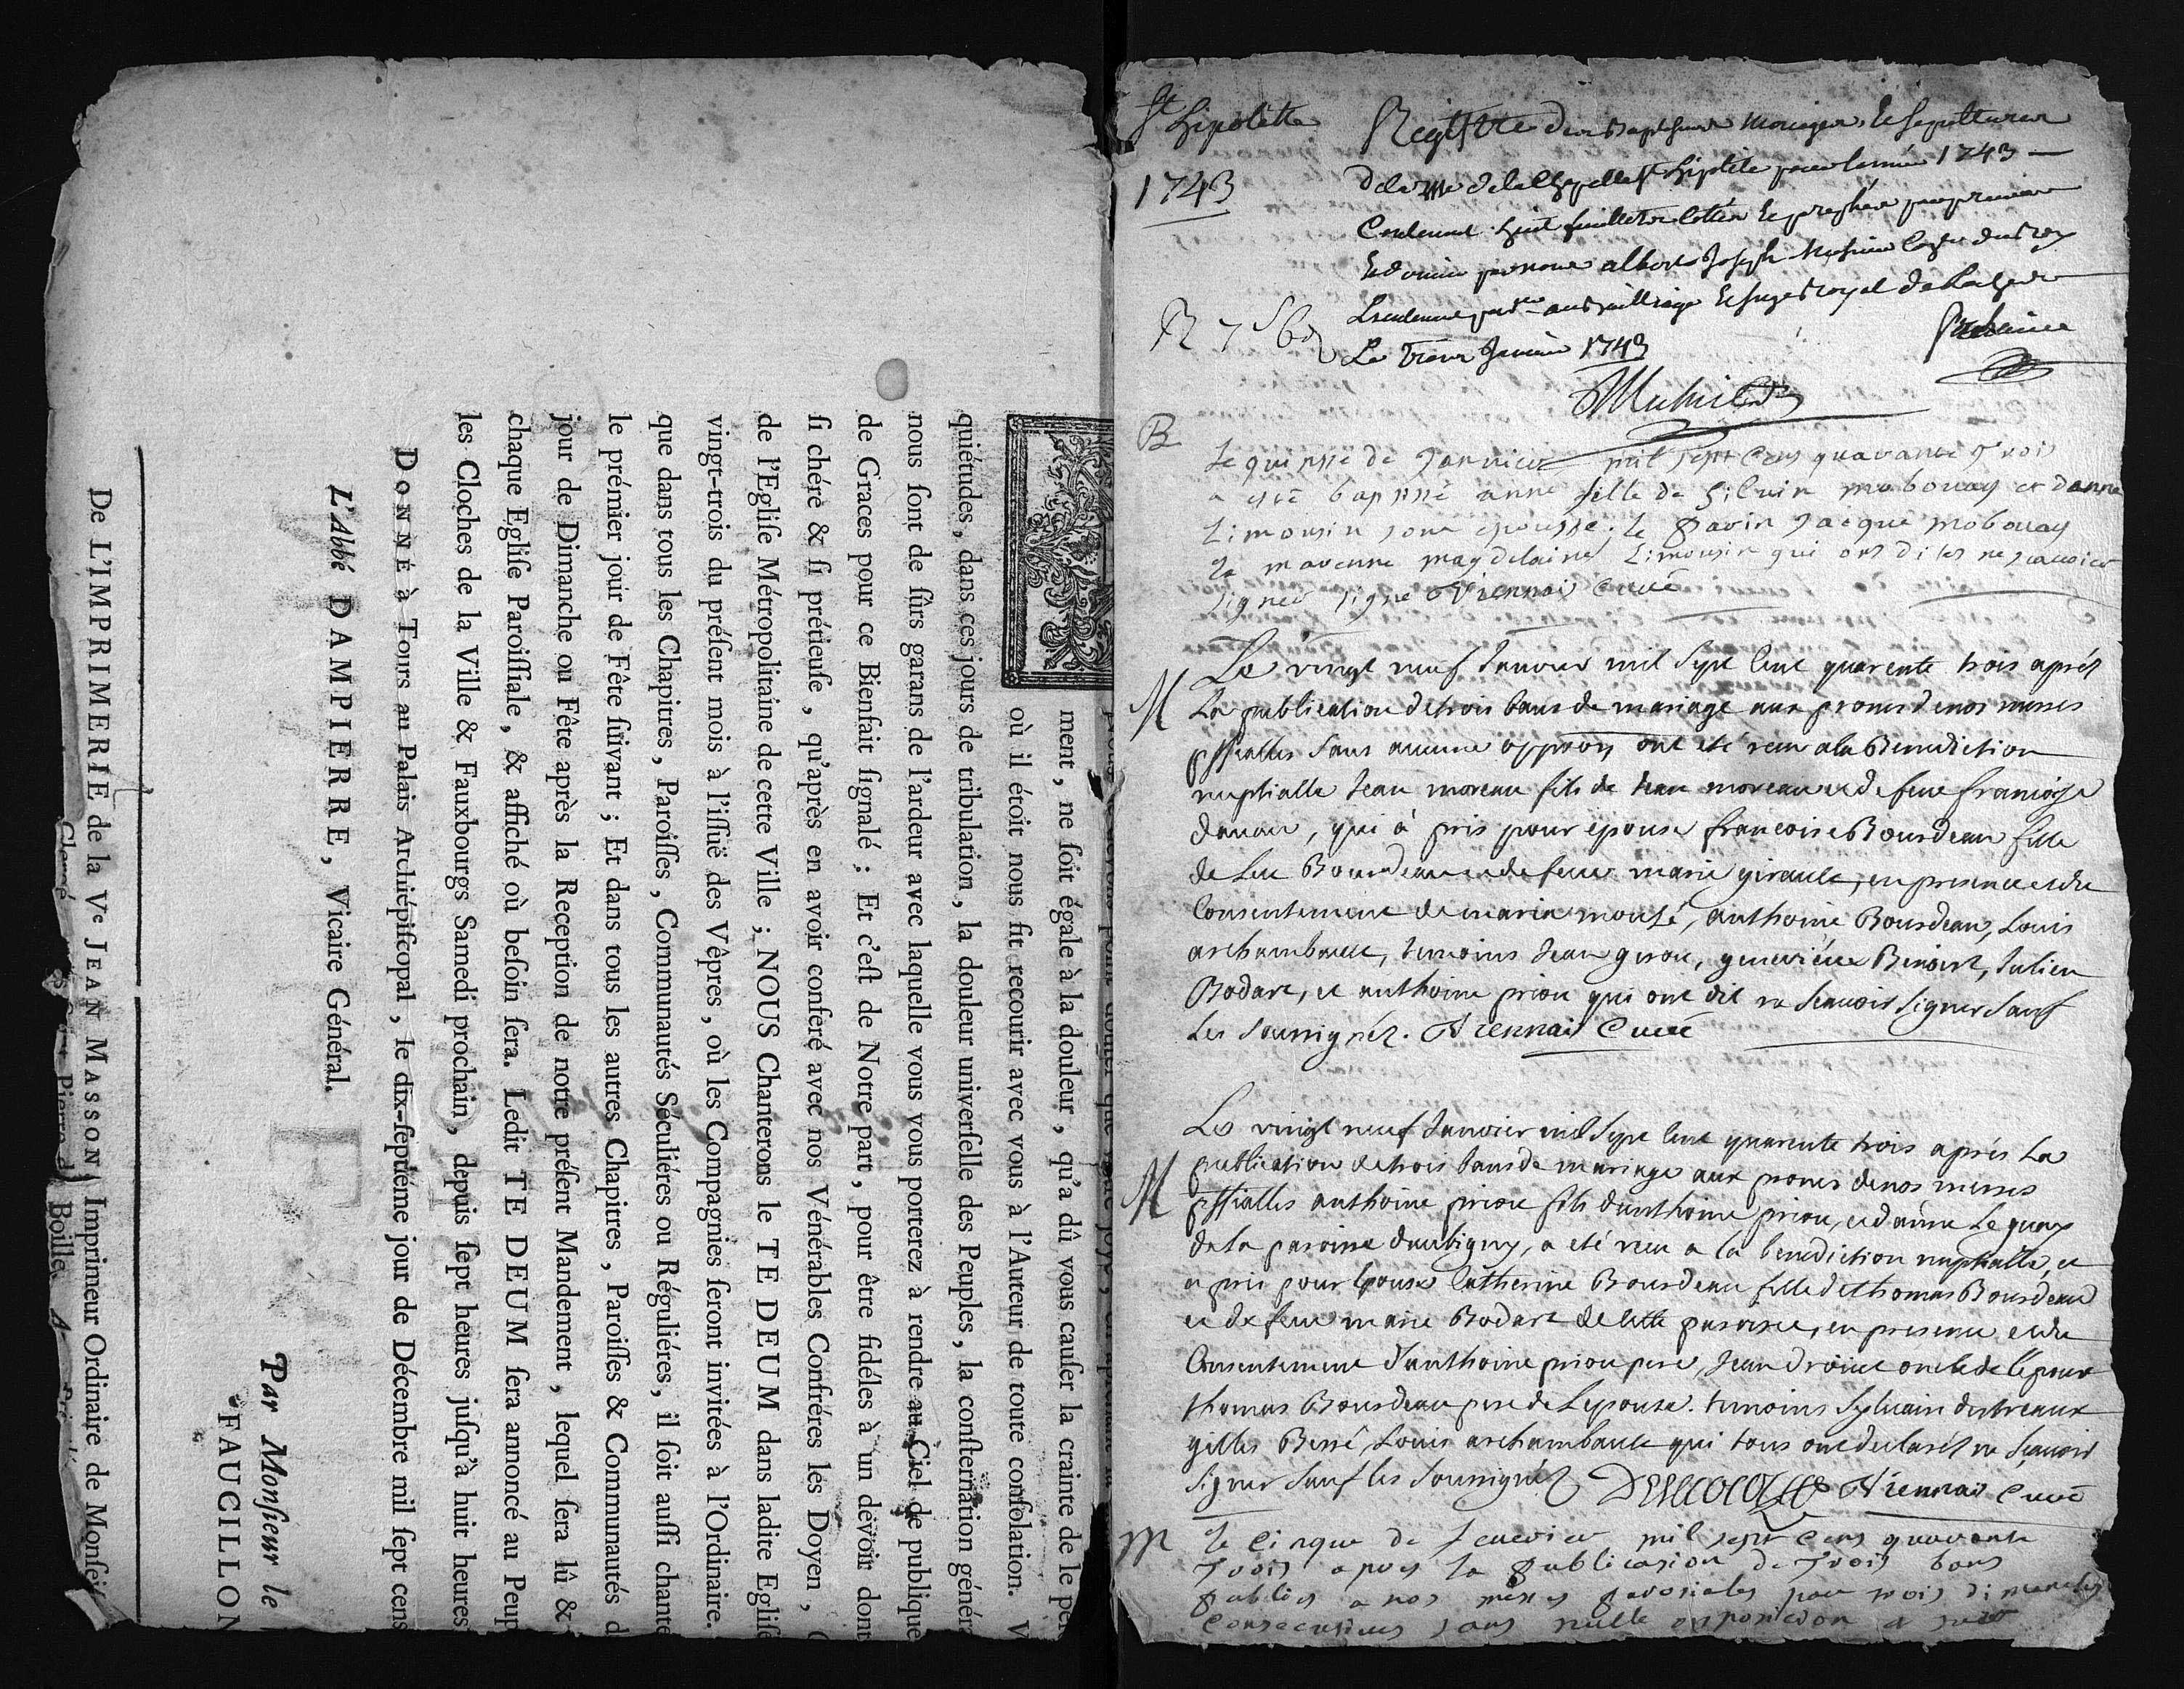 ment, ne ſoit égale à la douleur, qu'a dû vous cauſer la crainte de le
où il étoit nous fit recourir avec vous à l'Auteur de toute conſolation.
quiétudes, dans ces jours de tribulation, la douleur univerſelle des Peuples, la conſternation généra
nous ſont de ſûrs garans de l'ardeur avec laquelle vous vous porterez à rendre au Ciel de publique
de Graces pour ce Bienfait ſignalé : Et c'eſt de Notre part, pour être fidéles à un devoir dont
ſi chéré & ſi prétieuſe, qu'après en avoir conferé avec nos Vénérables Confréres les Doyen,
de l'Egliſe Métropolitaine de cette Ville ; NOUS Chanterons le TE DEUM dans ladite Egliſe
vingt-trois du préſent mois à l'iſſuë des Vêpres, où les Compagnies ſeront invitées à l'Ordinaire.
que dans tous les Chapitres, Paroiſſes, Communautés Séculiéres ou Réguliéres, il ſoit auſſi chanté
le prémier jour de Fête ſuivant ; Et dans tous les autres Chapitres, Paroiſſes & Communautés d
jour de Dimanche ou Fête après la Reception de notre préſent Mandement, lequel ſera lû &
chaque Egliſe Paroiſſiale, & affiché où beſoin ſera. Ledit TE DEUM ſera annoncé au Peup
les Cloches de la Ville & Fauxbourgs Samedi prochain, depuis ſept heures juſqu'à huit heures
DONNÉ à Tours au Palais Archiépiſcopal, le dix-ſeptiéme jour de Décembre mil ſept cens
L'Abbé DAMPIERRE, Vicaire Général.
Par Monſieur le
FAUCILLON
De L'IMPRIMERIE de la Ve JEAN MASSON, Imprimeur Ordinaire de Monſei
St hipolitte
1743
Registre des Baptesmes Mariages, & sepultures
de la psse de la Chapelle St hiplite pour lannée 1743
Contenant huit feuillets Cottés & paraphés par premier
Et dernier par nous albert Joseph
au Bailliage
Le Janvier 1743
B
Le quinsse de Janvier mil sept Cens quarante Trois
a esté baptisé anne fille de Silvin mabouay et danne
Limousin sone epousse. Le Parin Jacque Mobouay
La marenne magdelaine Limousin qui ons dites ne scavoier
Signer signe Viennais Curé
M
Le vingt neuf Janvier mil sept Cent quarente trois aprés
La publication de trois bans de mariage aux prones de nos messes
pssialles sans aucune oppaon ont eté receu a la Benediction
nuptialle Jean moreau fils de Jean moreau et de feue francoise
danau, qui à pris pour epouse francoise Bourdeau fille
de Luc Bourdeau et de feue marie girault, en presence et du
Consentement de marie mousé, anthoine Bourdeau, Louis
archambault, temoins Jean girou, genevieve Benoist, Julien
Bodart, et anthoine priou qui ont dit ne scavoir signer sauf
Les soussignéz. Viennais Curé
M
Le vingt neuf Janvier mil sept Cent quarente trois aprés La
publication de trois bans de mariage aux prones de nos messes
pssialles anthoine priou fils danthoine priou, et danne Lequay
de la paroisse daubigny, a eté receu a la benediction nuptialle, et
a pris pour Epouse Catherine Bourdeau fille de thomas Bourdeau
et de feue marie Bodart de cette paroisse, en presence et du
Consentement d'anthoine priou pere, Jean droüet oncle de l'epoux
thomas Bourdeau pere de Lepouse. temoins Sylvain destreaux
gilles Berré, Louis archambault qui tous ont declaréz ne scavoir
signer sauf les soussignéz Viennais Curé
m
Le Cinque de feuvrier mil sept Cens quarante
Trois apres la Publication de Trois bans
Publies a nos messes parosiales par trois dimanches
Consecutives sans nulle opposition